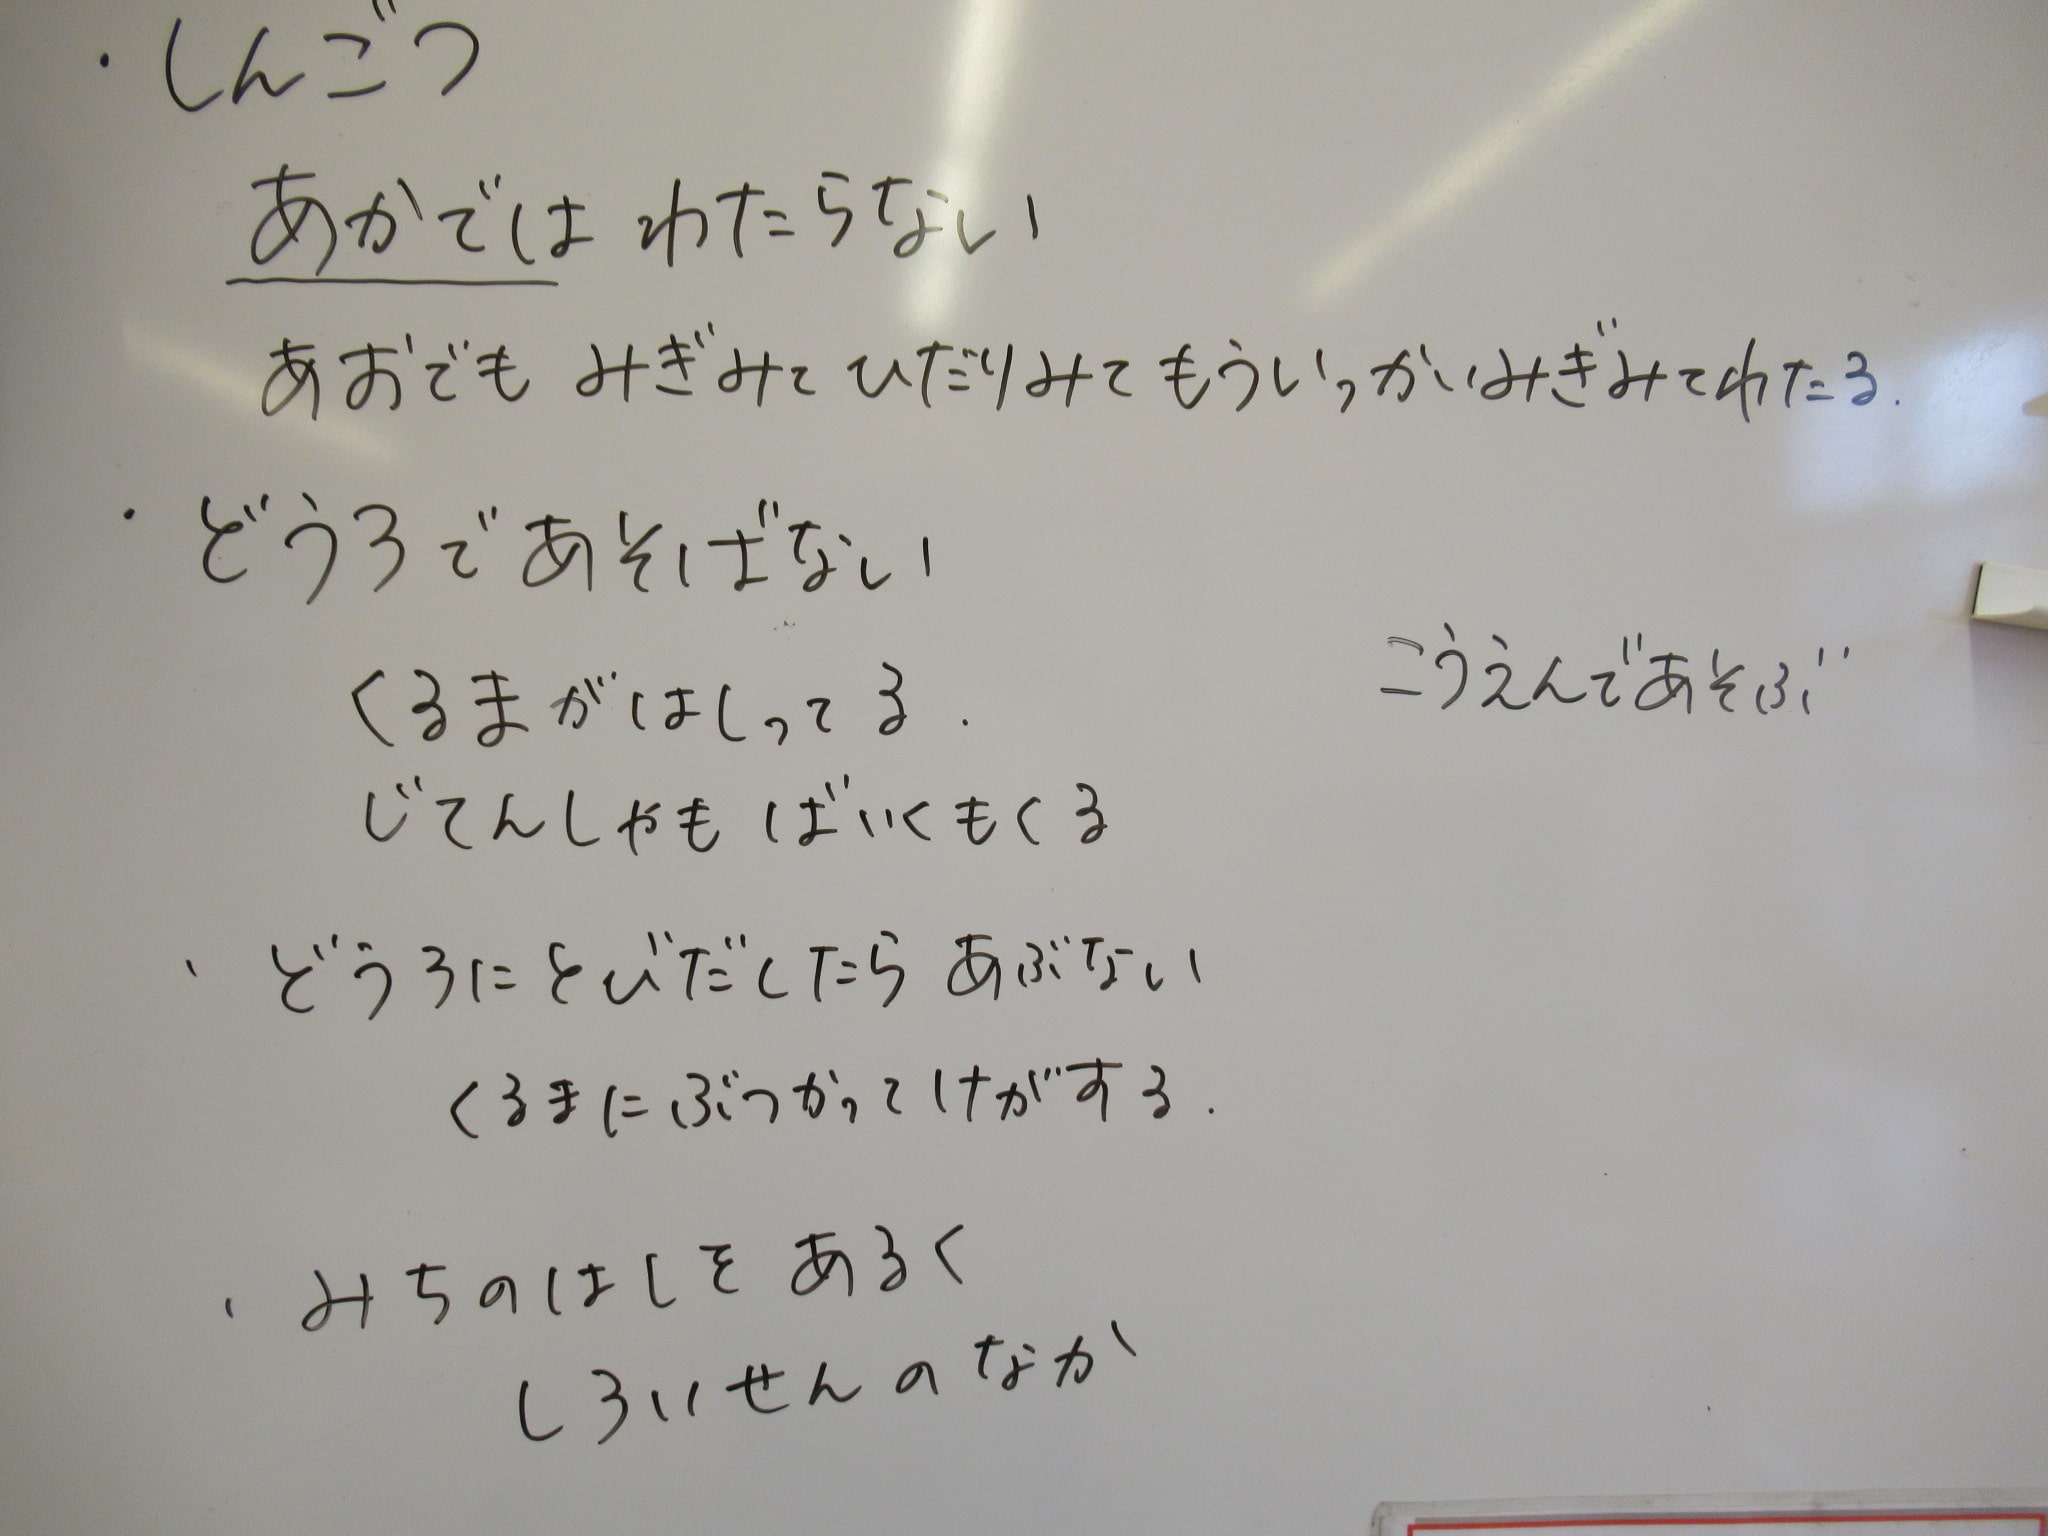 ・しんごう
あかでは わたらない
あおでも みぎみて ひだりみて もういっかいみぎみてわたる.
・どうろであそばない
くるまがはしってる.
こうえんであそぶ
じてんしゃも ばいくもくる
・どうろにとびだしたら あぶない
くるまにぶつかってけがする.
・みちのはしを あるく
しろいせんのなか